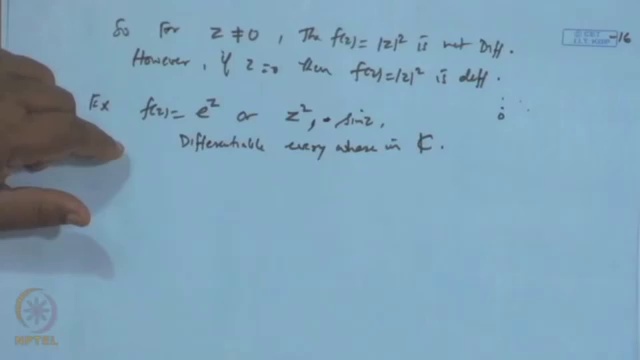 So For z ≠ 0, The f(z) = |z|² is not Diff.
However, if z = 0 Then f(z) = |z|² is diff.
Ex f(z) = e^z or z², sin z,
Differentiable every where in ℂ.
0
-16
NPTEL